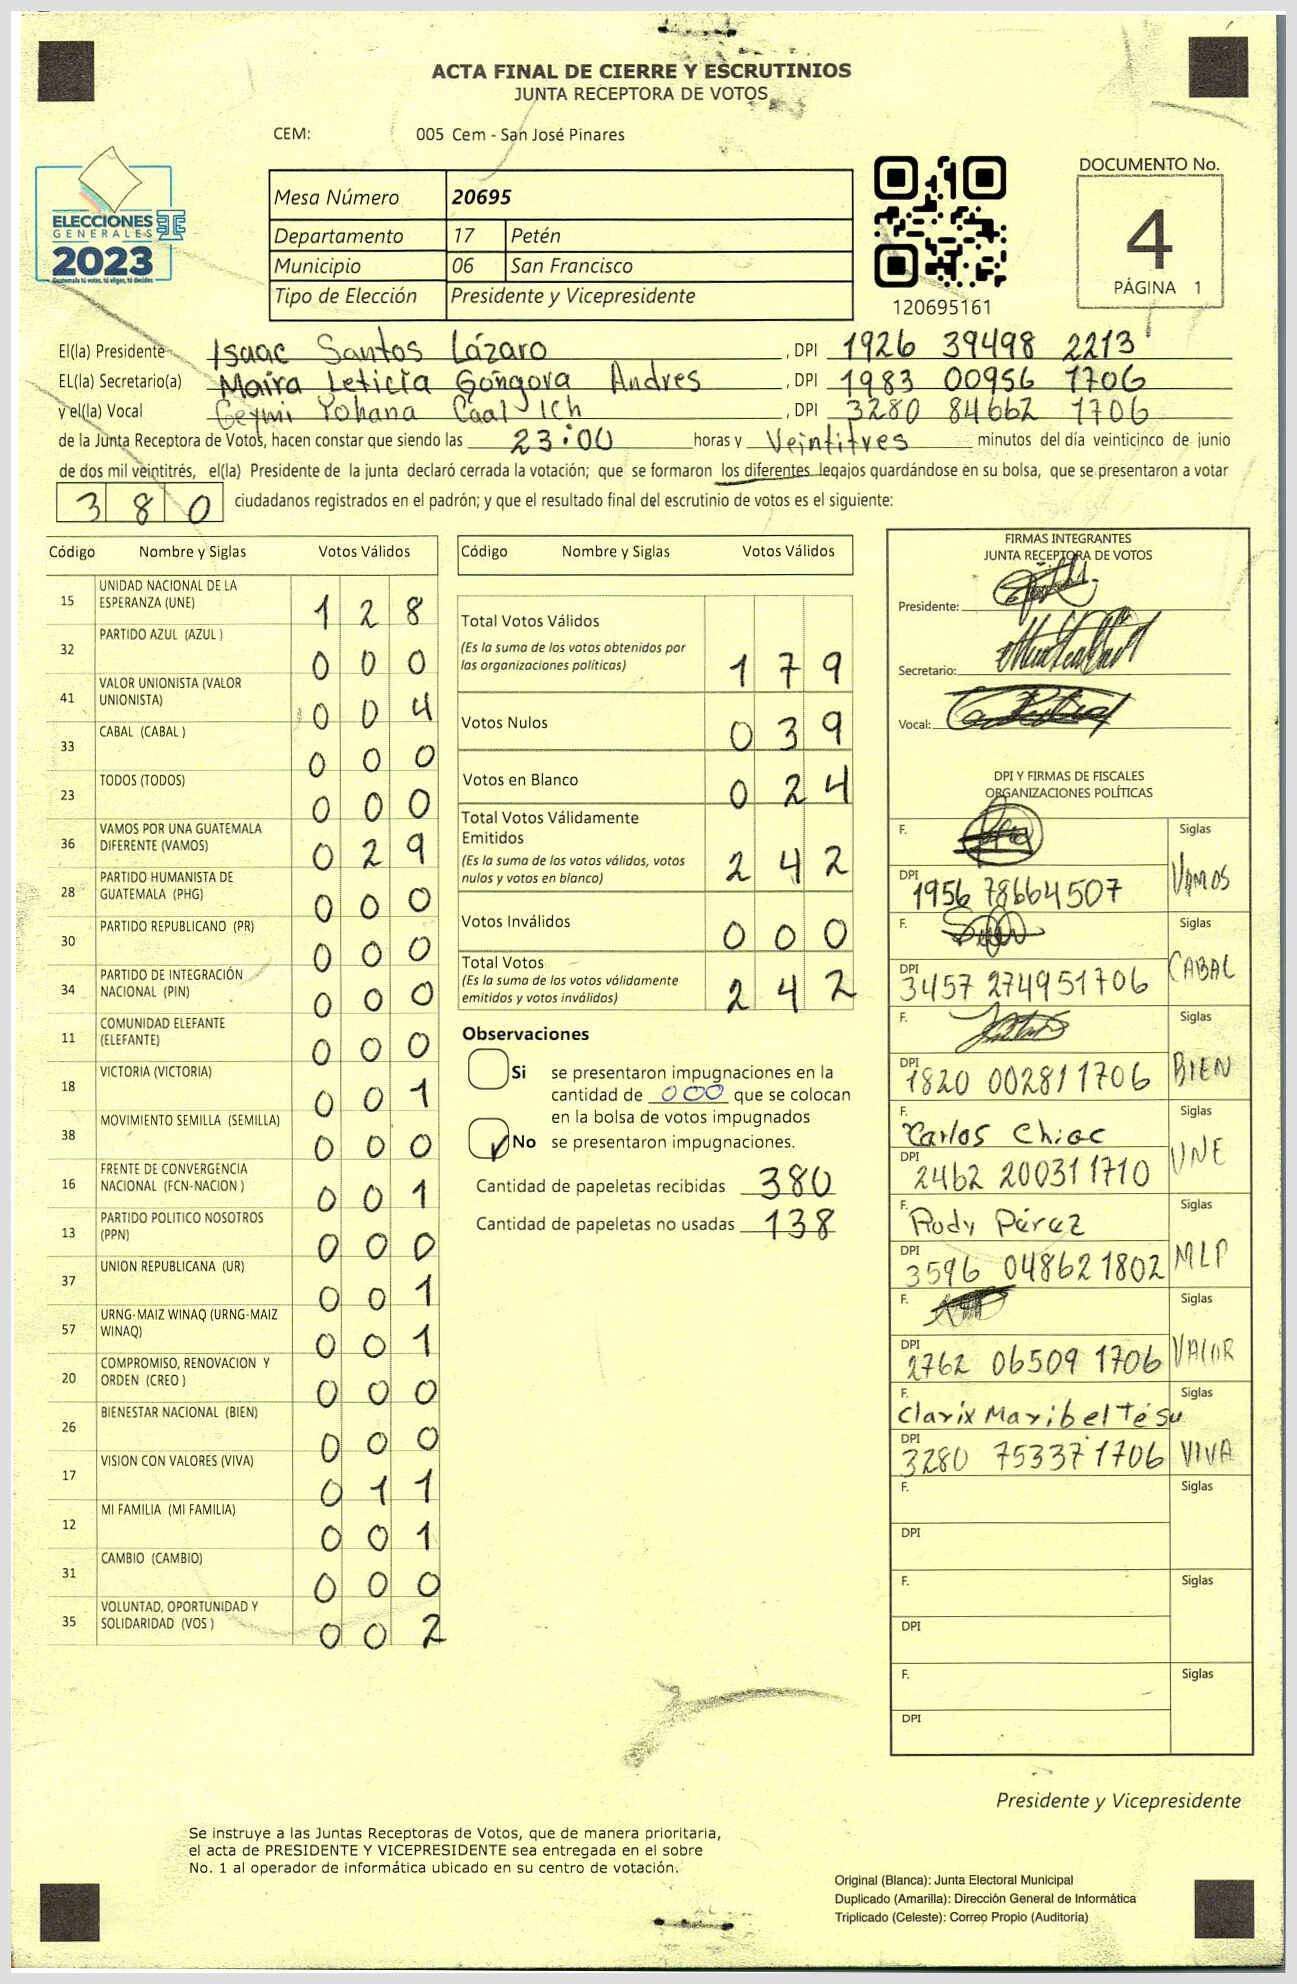 ACTA FINAL DE CIERRE Y ESCRUTINIOS
JUNTA RECEPTORA DE VOTOS
CEM: 005 Cem - San José Pinares
ELECCIONES
GENERALES
2023
Guatemala tú votas, tú eliges, tú decides
Mesa Número 20695
Departamento 17 Petén
Municipio 06 San Francisco
Tipo de Elección Presidente y Vicepresidente
120695161
DOCUMENTO No.
4
PÁGINA 1
El(la) Presidente Isaac Santos Lázaro , DPI 1926 39498 2213
EL(la) Secretario(a) Maira Leticia Góngora Andres , DPI 1983 00956 1706
y el(la) Vocal Geymi Yohana Caal Ich , DPI 3280 84662 1706
de la Junta Receptora de Votos, hacen constar que siendo las 23:00 horas y Veintitres minutos del día veinticinco de junio
de dos mil veintitrés, el(la) Presidente de la junta declaró cerrada la votación; que se formaron los diferentes legajos guardándose en su bolsa, que se presentaron a votar
380 ciudadanos registrados en el padrón; y que el resultado final del escrutinio de votos es el siguiente:
Código Nombre y Siglas Votos Válidos
15 UNIDAD NACIONAL DE LA ESPERANZA (UNE) 128
32 PARTIDO AZUL (AZUL ) 000
41 VALOR UNIONISTA (VALOR UNIONISTA) 004
33 CABAL (CABAL ) 000
23 TODOS (TODOS) 000
36 VAMOS POR UNA GUATEMALA DIFERENTE (VAMOS) 029
28 PARTIDO HUMANISTA DE GUATEMALA (PHG) 000
30 PARTIDO REPUBLICANO (PR) 000
34 PARTIDO DE INTEGRACIÓN NACIONAL (PIN) 000
11 COMUNIDAD ELEFANTE (ELEFANTE) 000
18 VICTORIA (VICTORIA) 001
38 MOVIMIENTO SEMILLA (SEMILLA) 000
16 FRENTE DE CONVERGENCIA NACIONAL (FCN-NACION ) 001
13 PARTIDO POLITICO NOSOTROS (PPN) 000
37 UNION REPUBLICANA (UR) 001
57 URNG-MAIZ WINAQ (URNG-MAIZ WINAQ) 001
20 COMPROMISO, RENOVACION Y ORDEN (CREO ) 000
26 BIENESTAR NACIONAL (BIEN) 000
17 VISION CON VALORES (VIVA) 011
12 MI FAMILIA (MI FAMILIA) 001
31 CAMBIO (CAMBIO) 000
35 VOLUNTAD, OPORTUNIDAD Y SOLIDARIDAD (VOS ) 002
Código Nombre y Siglas Votos Válidos
Total Votos Válidos 179
(Es la suma de los votos obtenidos por
las organizaciones políticas)
Votos Nulos 039
Votos en Blanco 024
Total Votos Válidamente
Emitidos 242
(Es la suma de los votos válidos, votos
nulos y votos en blanco)
Votos Inválidos 000
Total Votos 242
(Es la suma de los votos válidamente
emitidos y votos inválidos)
Observaciones
Si se presentaron impugnaciones en la
cantidad de 000 que se colocan
en la bolsa de votos impugnados
No se presentaron impugnaciones.
Cantidad de papeletas recibidas 380
Cantidad de papeletas no usadas 138
FIRMAS INTEGRANTES
JUNTA RECEPTORA DE VOTOS
Presidente:
Secretario:
Vocal:
DPI Y FIRMAS DE FISCALES
ORGANIZACIONES POLÍTICAS
F. Siglas
DPI 1956 78664507 VAMOS
F. Siglas
DPI 3457 274951706 CABAL
F. Siglas
DPI 1820 002811706 BIEN
F. Carlos Chioc Siglas
DPI 2462 200311710 UNE
F. Rudy Pérez Siglas
DPI 3596 048621802 MLP
F. Siglas
DPI 2762 06509 1706 VALOR
F. Clarix Maribel Tésu Siglas
DPI 3280 75337 1706 VIVA
F. Siglas
DPI
F. Siglas
DPI
F. Siglas
DPI
Presidente y Vicepresidente
Se instruye a las Juntas Receptoras de Votos, que de manera prioritaria,
el acta de PRESIDENTE Y VICEPRESIDENTE sea entregada en el sobre
No. 1 al operador de informática ubicado en su centro de votación.
Original (Blanca): Junta Electoral Municipal
Duplicado (Amarilla): Dirección General de Informática
Triplicado (Celeste): Correo Propio (Auditoría)